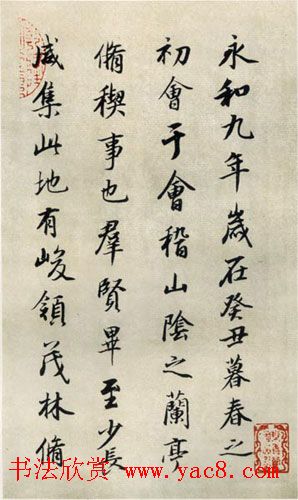 永和九年歲在癸丑暮春之
初會于會稽山陰之蘭亭
脩稧事也羣賢畢至少長
咸集此地有峻領茂林脩
书法欣赏 www.yac8.com